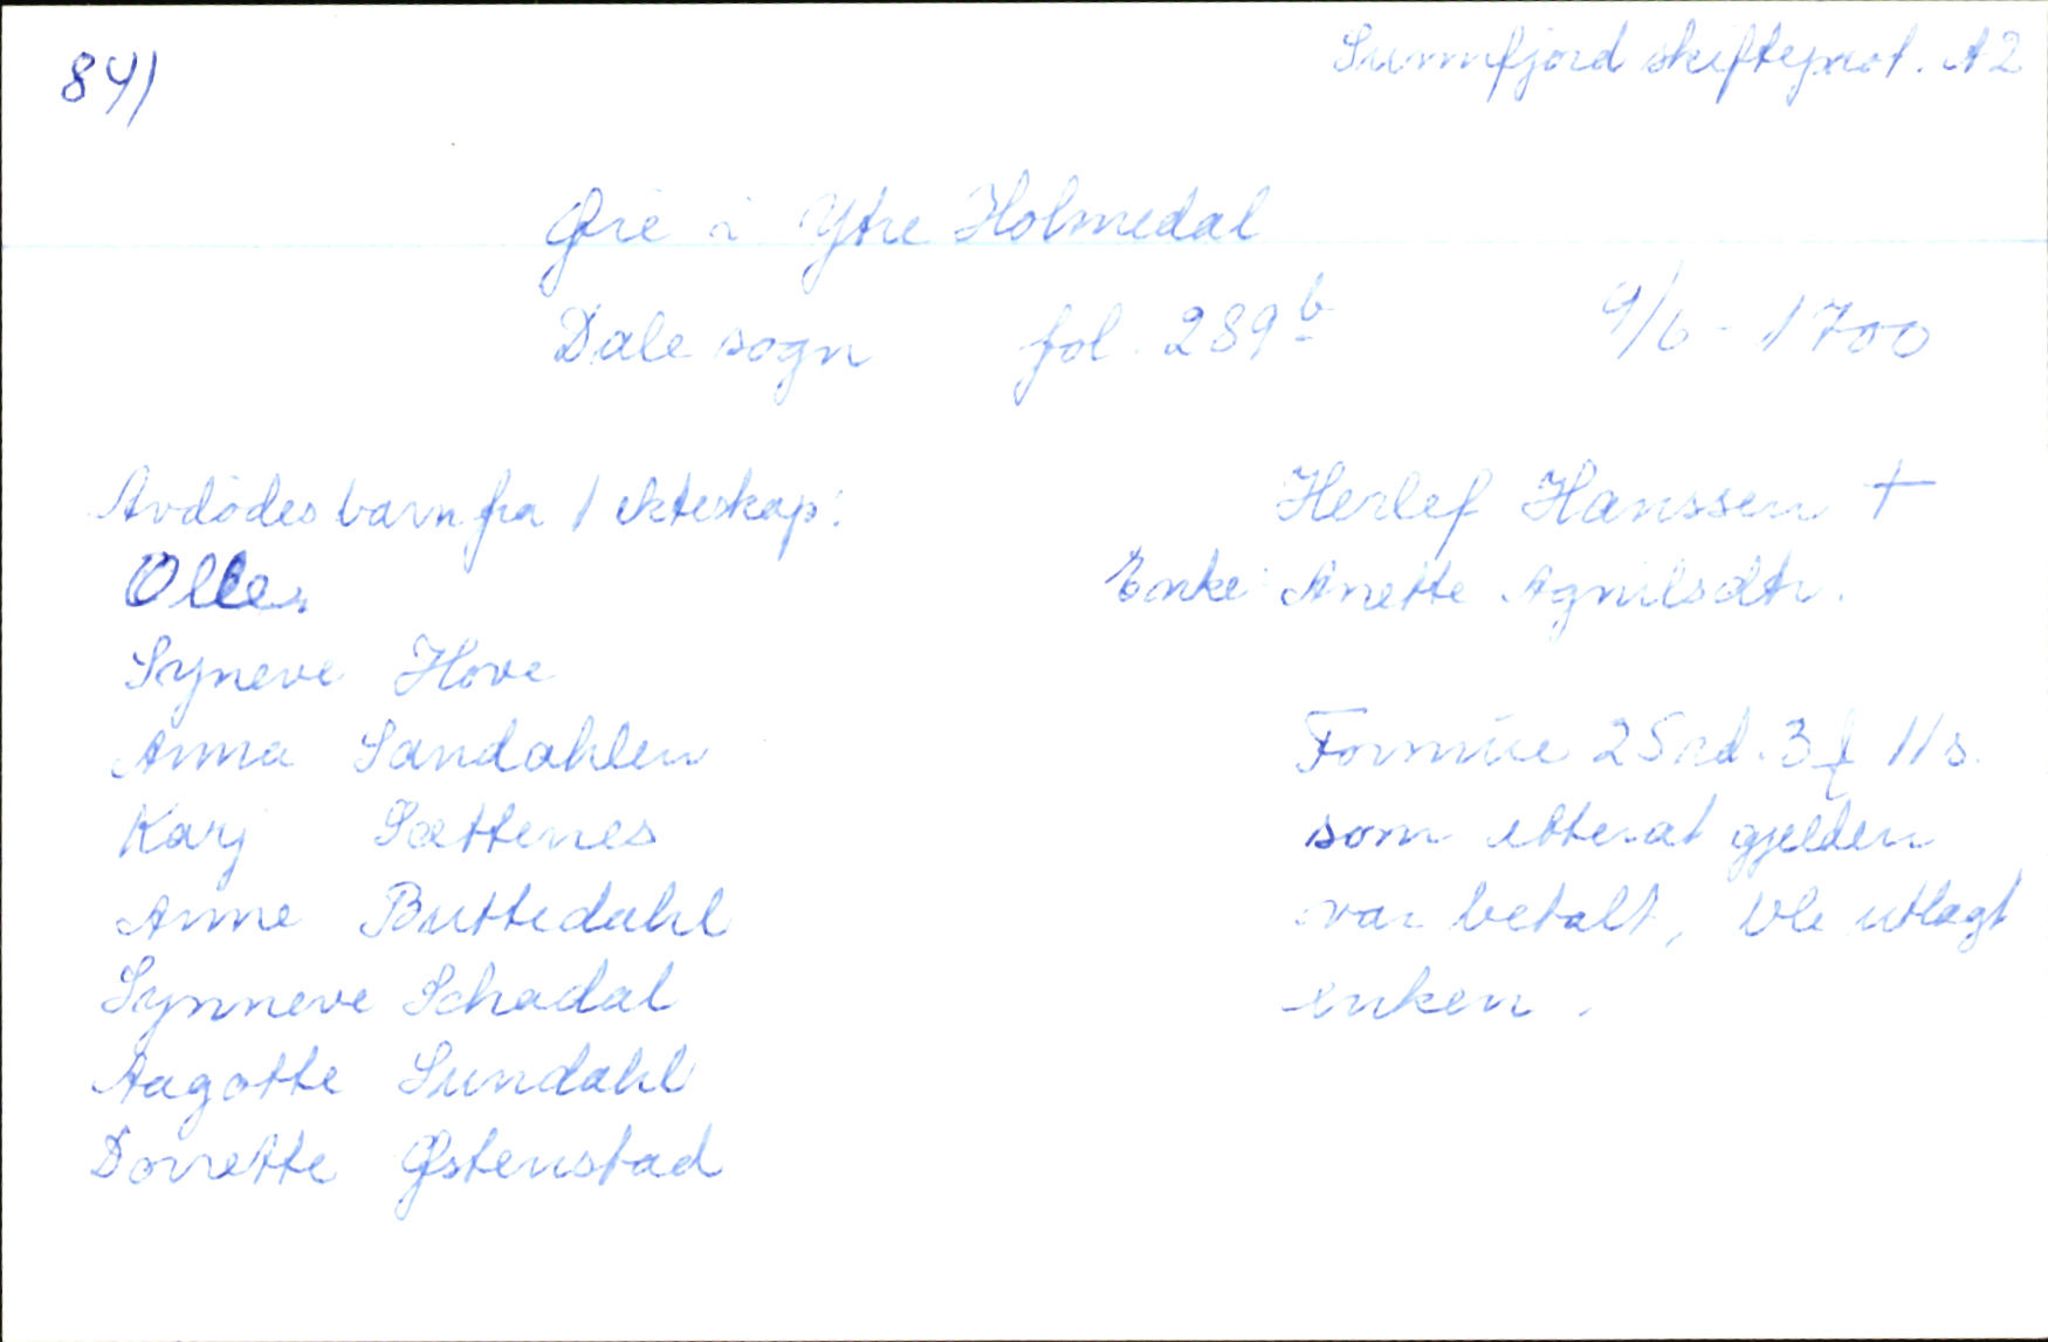 841
Sunnfjord skifteprot. A2
Øre i Ytre Holmedal
Dale sogn fol. 289b 9/6-1700
Avdødes barn fra 1 ekteskap:
Olle
Syneve Hove
Anna Sandahlen
Karj Sættenes
Anne Buttedahl
Synneve Schadal
Aagotte Sundahl
Dorrette Østenstad
Herlef Hanssen †
Enke: Anette Agnilsdtr.
Formue 25 rd. 3 f 11 s.
som etterat gjelden
var betalt, ble utlagt
enken.